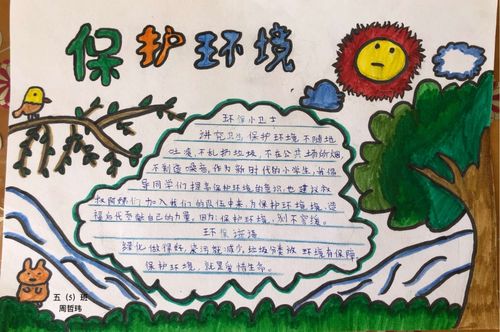 保护环境
环保小卫士
讲究卫生 保护环境,不随地
吐痰,不乱扔垃圾,不在公共场所烟,
不制造噪音,作为新时代的小学生,我倡
导同学们提高保护环境的意识,也建议叔
叔阿姨们加入我们的队伍中来,为保护环境、造
福后代贡献自己的力量,因为:保护环境,刻不容缓。
环保谚语
绿化做得好,废污能减少,垃圾分类放 环境有保障
保护环境 就是爱惜生命。
五(5)班
周哲玮